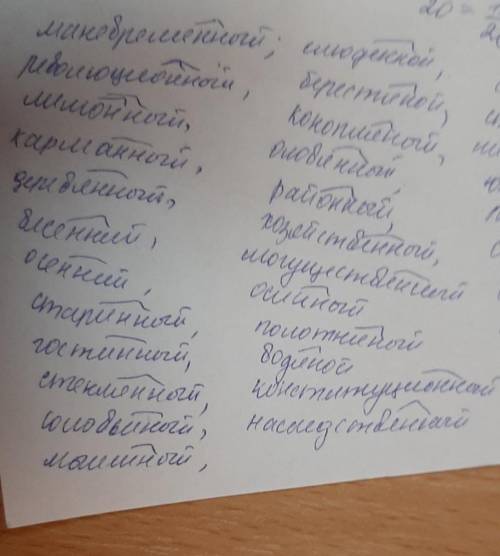 20 =
маневременный; слюденой,
революционный, берестяной,
лимонный, конопляной,
карманный, оловянный,
деревянный, районный,
весенний, хозяйственный,
осенний, могущественный
старинный, осиный
гостинный, полотняный
стеклянный, водяной
соловьиный, конституционный
машинный, наследственный